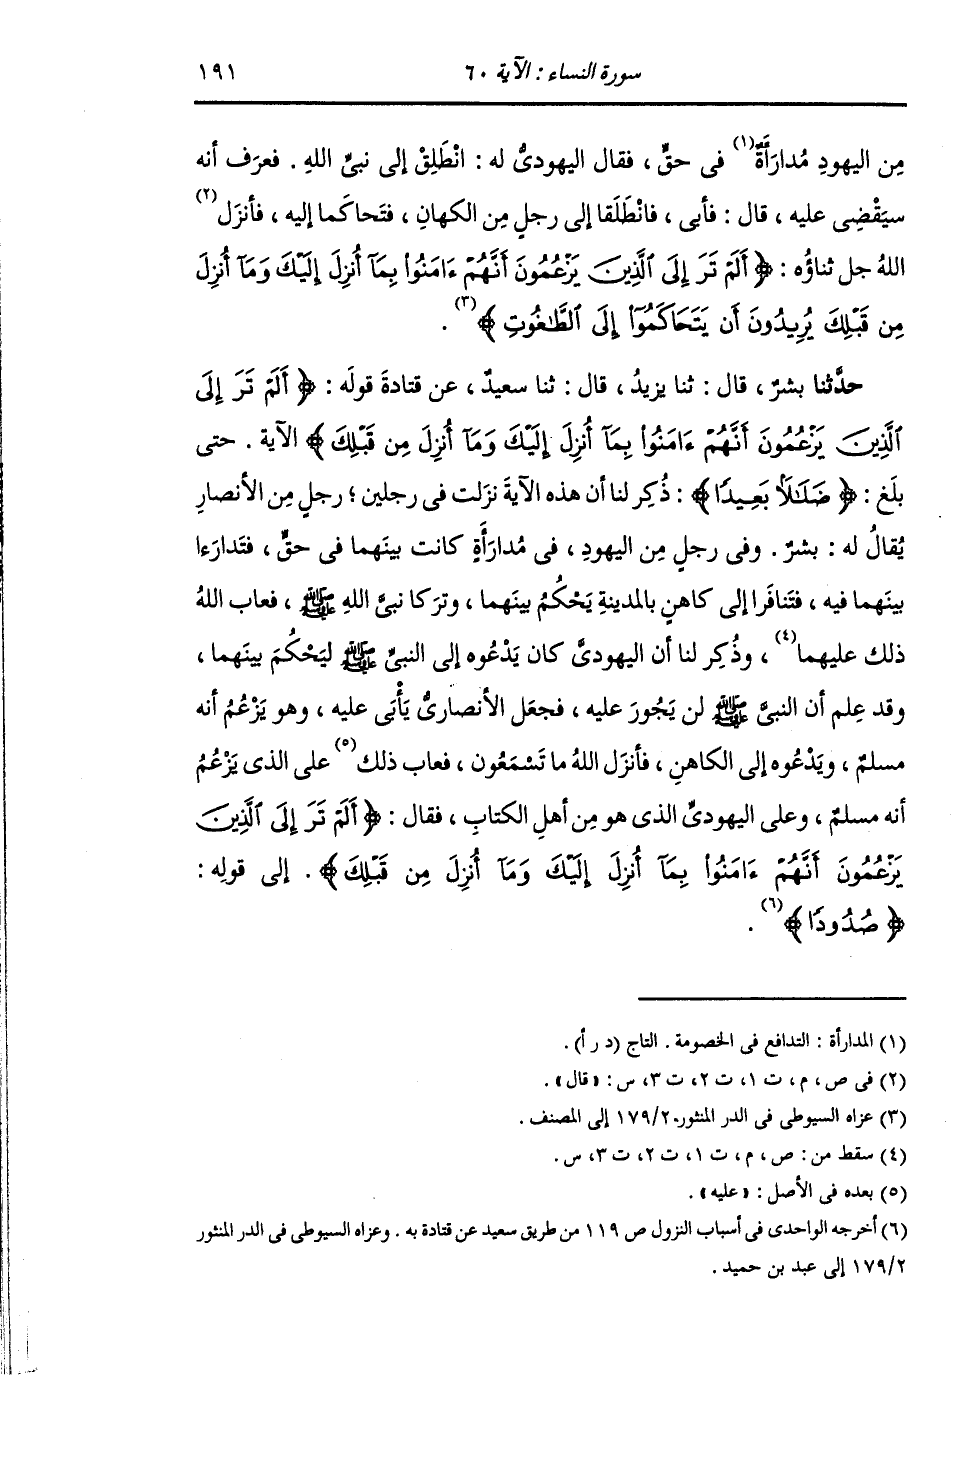 سورة النساء : الآية ٦٠ ١٩١
مِن اليهودِ مُدارَأَةٌ(١) فى حقٍّ ، فقال اليهودىُّ له : انْطَلِقْ إلى نبىِّ اللهِ . فعرَف أنه
سيَقْضِى عليه ، قال : فأبى ، فانْطَلَقا إلى رجلٍ مِن الكهانِ ، فتَحاكَما إليه ، فأنزَل(٢)
اللهُ جل ثناؤُه : ﴿ أَلَمْ تَرَ إِلَى ٱلَّذِينَ يَزْعُمُونَ أَنَّهُمْ ءَامَنُوا۟ بِمَآ أُنزِلَ إِلَيْكَ وَمَآ أُنزِلَ
مِن قَبْلِكَ يُرِيدُونَ أَن يَتَحَاكَمُوٓا۟ إِلَى ٱلطَّٰغُوتِ ﴾(٣) .
حدَّثنا بشرٌ ، قال : ثنا يزيدُ ، قال : ثنا سعيدٌ ، عن قتادةَ قولَه : ﴿ أَلَمْ تَرَ إِلَى
ٱلَّذِينَ يَزْعُمُونَ أَنَّهُمْ ءَامَنُوا۟ بِمَآ أُنزِلَ إِلَيْكَ وَمَآ أُنزِلَ مِن قَبْلِكَ ﴾ الآية . حتى
بلَغ : ﴿ ضَلَٰلًۢا بَعِيدًا ﴾ : ذُكِر لنا أن هذه الآيةَ نزَلت فى رجلين ؛ رجلٍ مِن الأنصارِ
يُقالُ له : بشرٌ . وفى رجلٍ مِن اليهودِ ، فى مُدارَأَةٍ كانت بينَهما فى حقٍّ ، فتَدارَءا
بينَهما فيه ، فتَنافَرا إلى كاهنٍ بالمدينةِ يَحْكُمُ بينَهما ، وترَكا نبىَّ اللهِ ﷺ ، فعاب اللهُ
ذلك عليهما(٤) ، وذُكِر لنا أن اليهودىَّ كان يَدْعُوه إلى النبىِّ ﷺ ليَحْكُمَ بينَهما ،
وقد علِم أن النبىَّ ﷺ لن يَجُورَ عليه ، فجعَل الأنصارىُّ يَأْبَى عليه ، وهو يَزْعُمُ أنه
مسلمٌ ، ويَدْعُوه إلى الكاهنِ ، فأنزَل اللهُ ما تَسْمَعُون ، فعاب ذلك(٥) على الذى يَزْعُمُ
أنه مسلمٌ ، وعلى اليهودىِّ الذى هو مِن أهلِ الكتابِ ، فقال : ﴿ أَلَمْ تَرَ إِلَى ٱلَّذِينَ
يَزْعُمُونَ أَنَّهُمْ ءَامَنُوا۟ بِمَآ أُنزِلَ إِلَيْكَ وَمَآ أُنزِلَ مِن قَبْلِكَ ﴾ . إلى قولِه :
﴿ صُدُودًا ﴾(٦) .
(١) المدارأة : التدافع فى الخصومة . التاج (د ر أ) .
(٢) فى ص ، م ، ت ١ ، ت ٢ ، ت ٣ ، س : «قال» .
(٣) عزاه السيوطى فى الدر المنثور ١٧٩/٢ إلى المصنف .
(٤) سقط من : ص ، م ، ت ١ ، ت ٢ ، ت ٣ ، س .
(٥) بعده فى الأصل : «عليه» .
(٦) أخرجه الواحدى فى أسباب النزول ص ١١٩ من طريق سعيد عن قتادة به . وعزاه السيوطى فى الدر المنثور
١٧٩/٢ إلى عبد بن حميد .